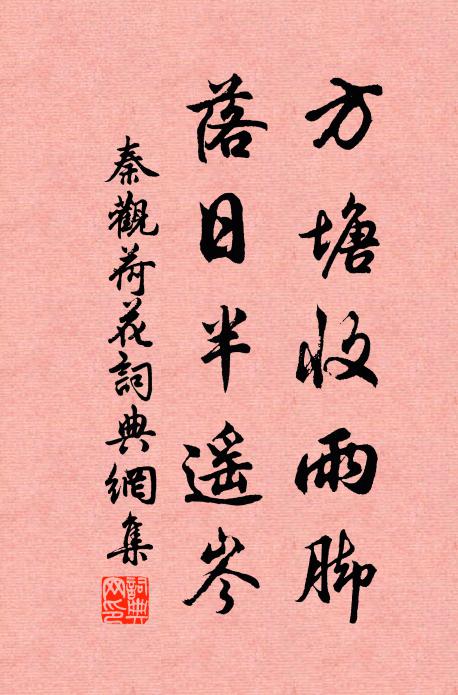 方塘收雨脚
落日半遥岑
秦觀荷花詞典網集
詞典網印